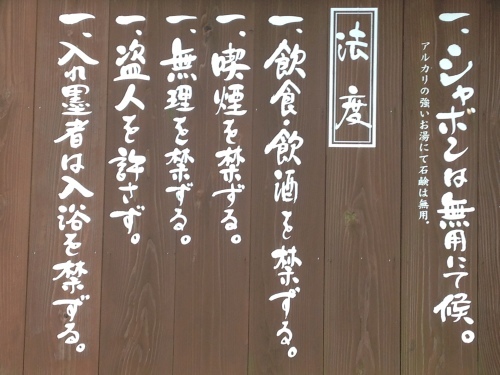 一、シャボンは無用にて候。
アルカリの強いお湯にて石鹸は無用。
法度
一、飲食・飲酒を禁ずる。
一、喫煙を禁ずる。
一、無理を禁ずる。
一、盗人を許さず。
一、入れ墨者は入浴を禁ずる。